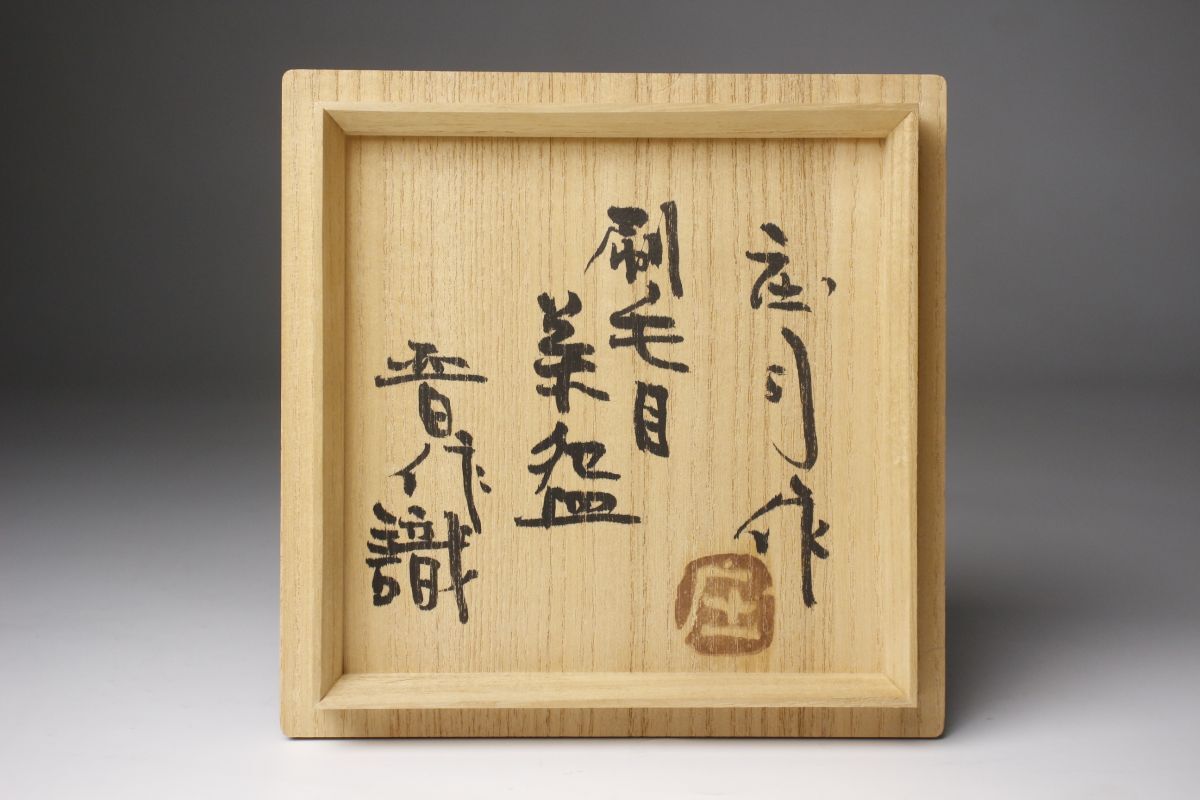 庄司作
刷毛目
茶盌
晋作識
庄